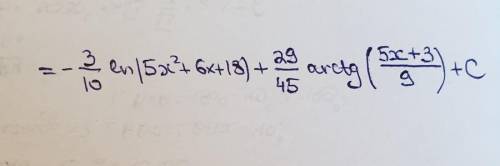 = - 3/10 ln|5x²+6x+18| + 29/45 arctg (5x+3/9) + C